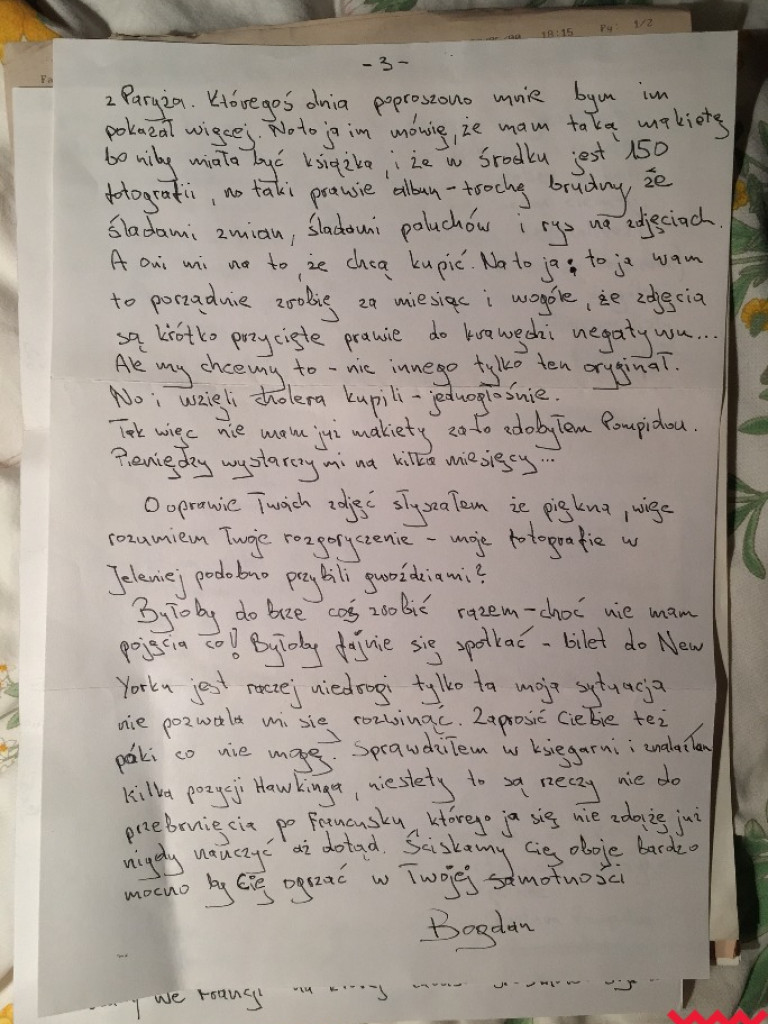 18:15 Pg: 1/2
Fa
- 3 -
z Paryża. Któregoś dnia poproszono mnie bym im
pokazał więcej. No to ja im mówię, że mam taką makietę
bo niby miała być książka, i że w środku jest 150
fotografii, no taki prawie album - trochę brudny, że
śladami zmian, śladami paluchów i rys na zdjęciach.
A oni mi na to, że chcą kupić. Na to ja: to ja wam
to porządnie zrobię za miesiąc i wogóle, że zdjęcia
są krótko przycięte prawie do krawędzi negatywu...
Ale my chcemy to - nic innego tylko ten oryginał.
No i wzięli cholera kupili - jednogłośnie.
Tak więc nie mam już makiety za to zdobyłem Pompidou.
Pieniędzy wystarczy mi na kilka miesięcy...
O oprawie Twoich zdjęć słyszałem że piękna, więc
rozumiem Twoje rozgoryczenie - moje fotografie w
Jeleniej podobno przybili gwoździami?
Byłoby dobrze coś zrobić razem - choć nie mam
pojęcia co! Byłoby fajnie się spotkać - bilet do New
Yorku jest raczej niedrogi tylko ta moja sytuacja
nie pozwala mi się rozwinąć. Zaprosić Ciebie też
póki co nie mogę. Sprawdziłem w księgarni i znalazłem
kilka pozycji Hawkinga, niestety to są rzeczy nie do
przebrnięcia po Francusku, którego ja się nie zdążę już
nigdy nauczyć aż dotąd. Ściskamy Cię oboje bardzo
mocno by Cię ogrzać w Twojej samotności
Bogdan
we Francji